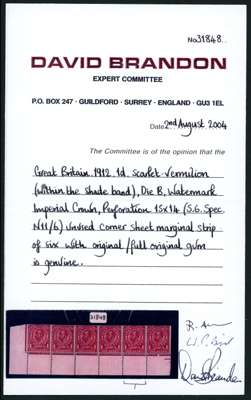 No 31848
DAVID BRANDON
EXPERT COMMITTEE
P.O. BOX 247 · GUILDFORD · SURREY · ENGLAND · GU3 1EL
Date 2nd August 2004
The Committee is of the opinion that the
Great Britain 1912 1d. scarlet-vermilion
(within the shade band), Die B, Watermark
Imperial Crown, Perforation 15x14 (S.G. Spec.
N11/6) unused corner sheet marginal strip
of six with original/full original gum
is genuine.
31848